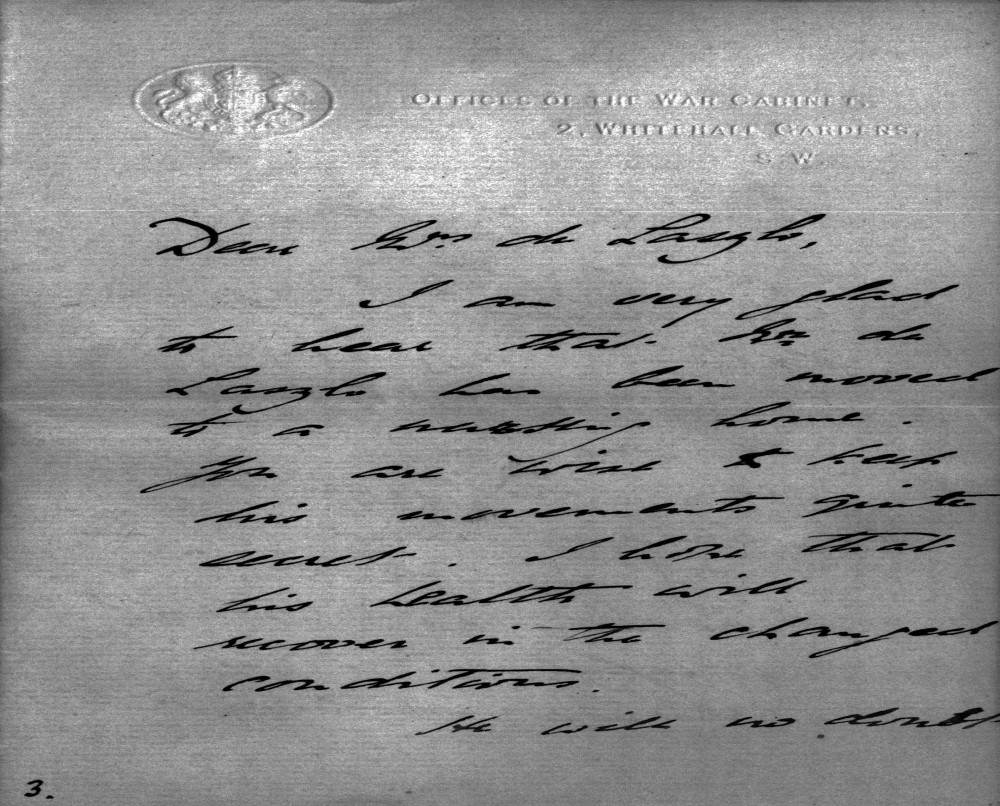 OFFICES OF THE WAR CABINET,
2, WHITEHALL GARDENS,
S.W.
Dear Mrs de Laszlo,
I am very glad
to hear that Mr de
Laszlo has been moved
to a nursing home.
You are wise to keep
his movements quite
secret. I hope that
his health will
recover in the changed
conditions.
He will no doubt
3.